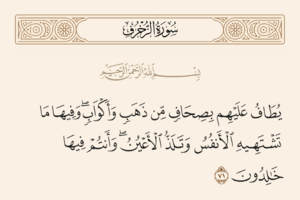 سُورَةُ الزُّخْرُفِ
بِسْمِ اللَّهِ الرَّحْمَٰنِ الرَّحِيمِ
يُطَافُ عَلَيْهِم بِصِحَافٍ مِّن ذَهَبٍ وَأَكْوَابٍ ۖ وَفِيهَا مَا
تَشْتَهِيهِ الْأَنفُسُ وَتَلَذُّ الْأَعْيُنُ ۖ وَأَنتُمْ فِيهَا
خَالِدُونَ ٧١